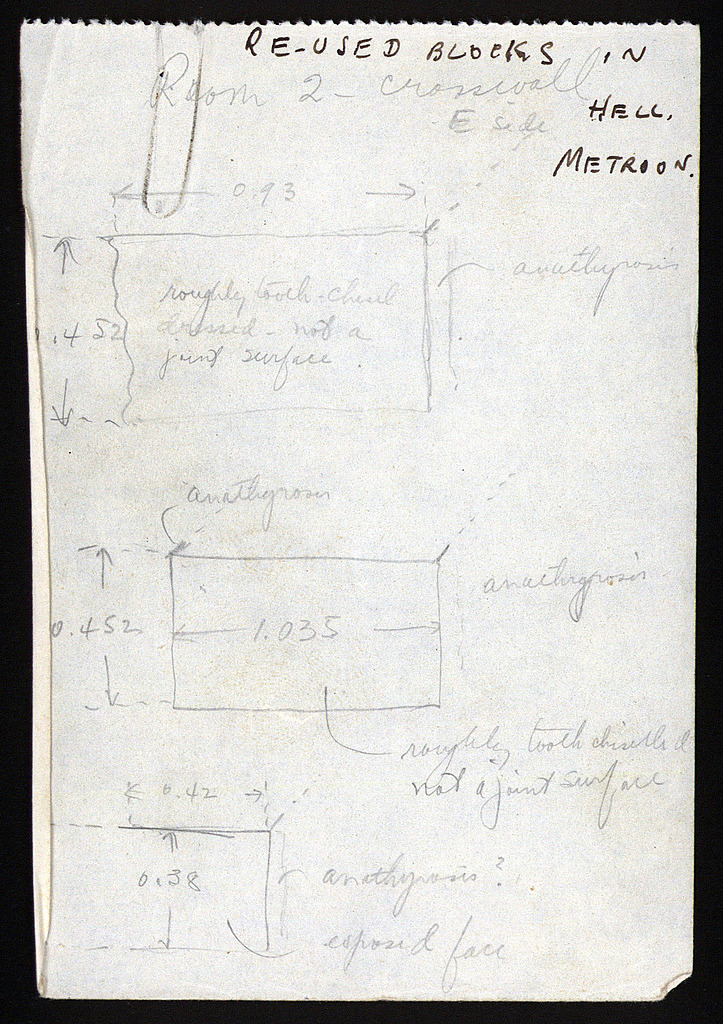 RE-USED BLOCKS IN
HELL.
METROON.
Room 2 - crosswall
E side
0.93
anathyrosis
roughly tooth-chisel
dressed - not a
joint surface.
.452
anathyrosis
anathyrosis
0.452
1.035
roughly tooth chiselled
not a joint surface
0.42
0.38
anathyrosis?
exposed face